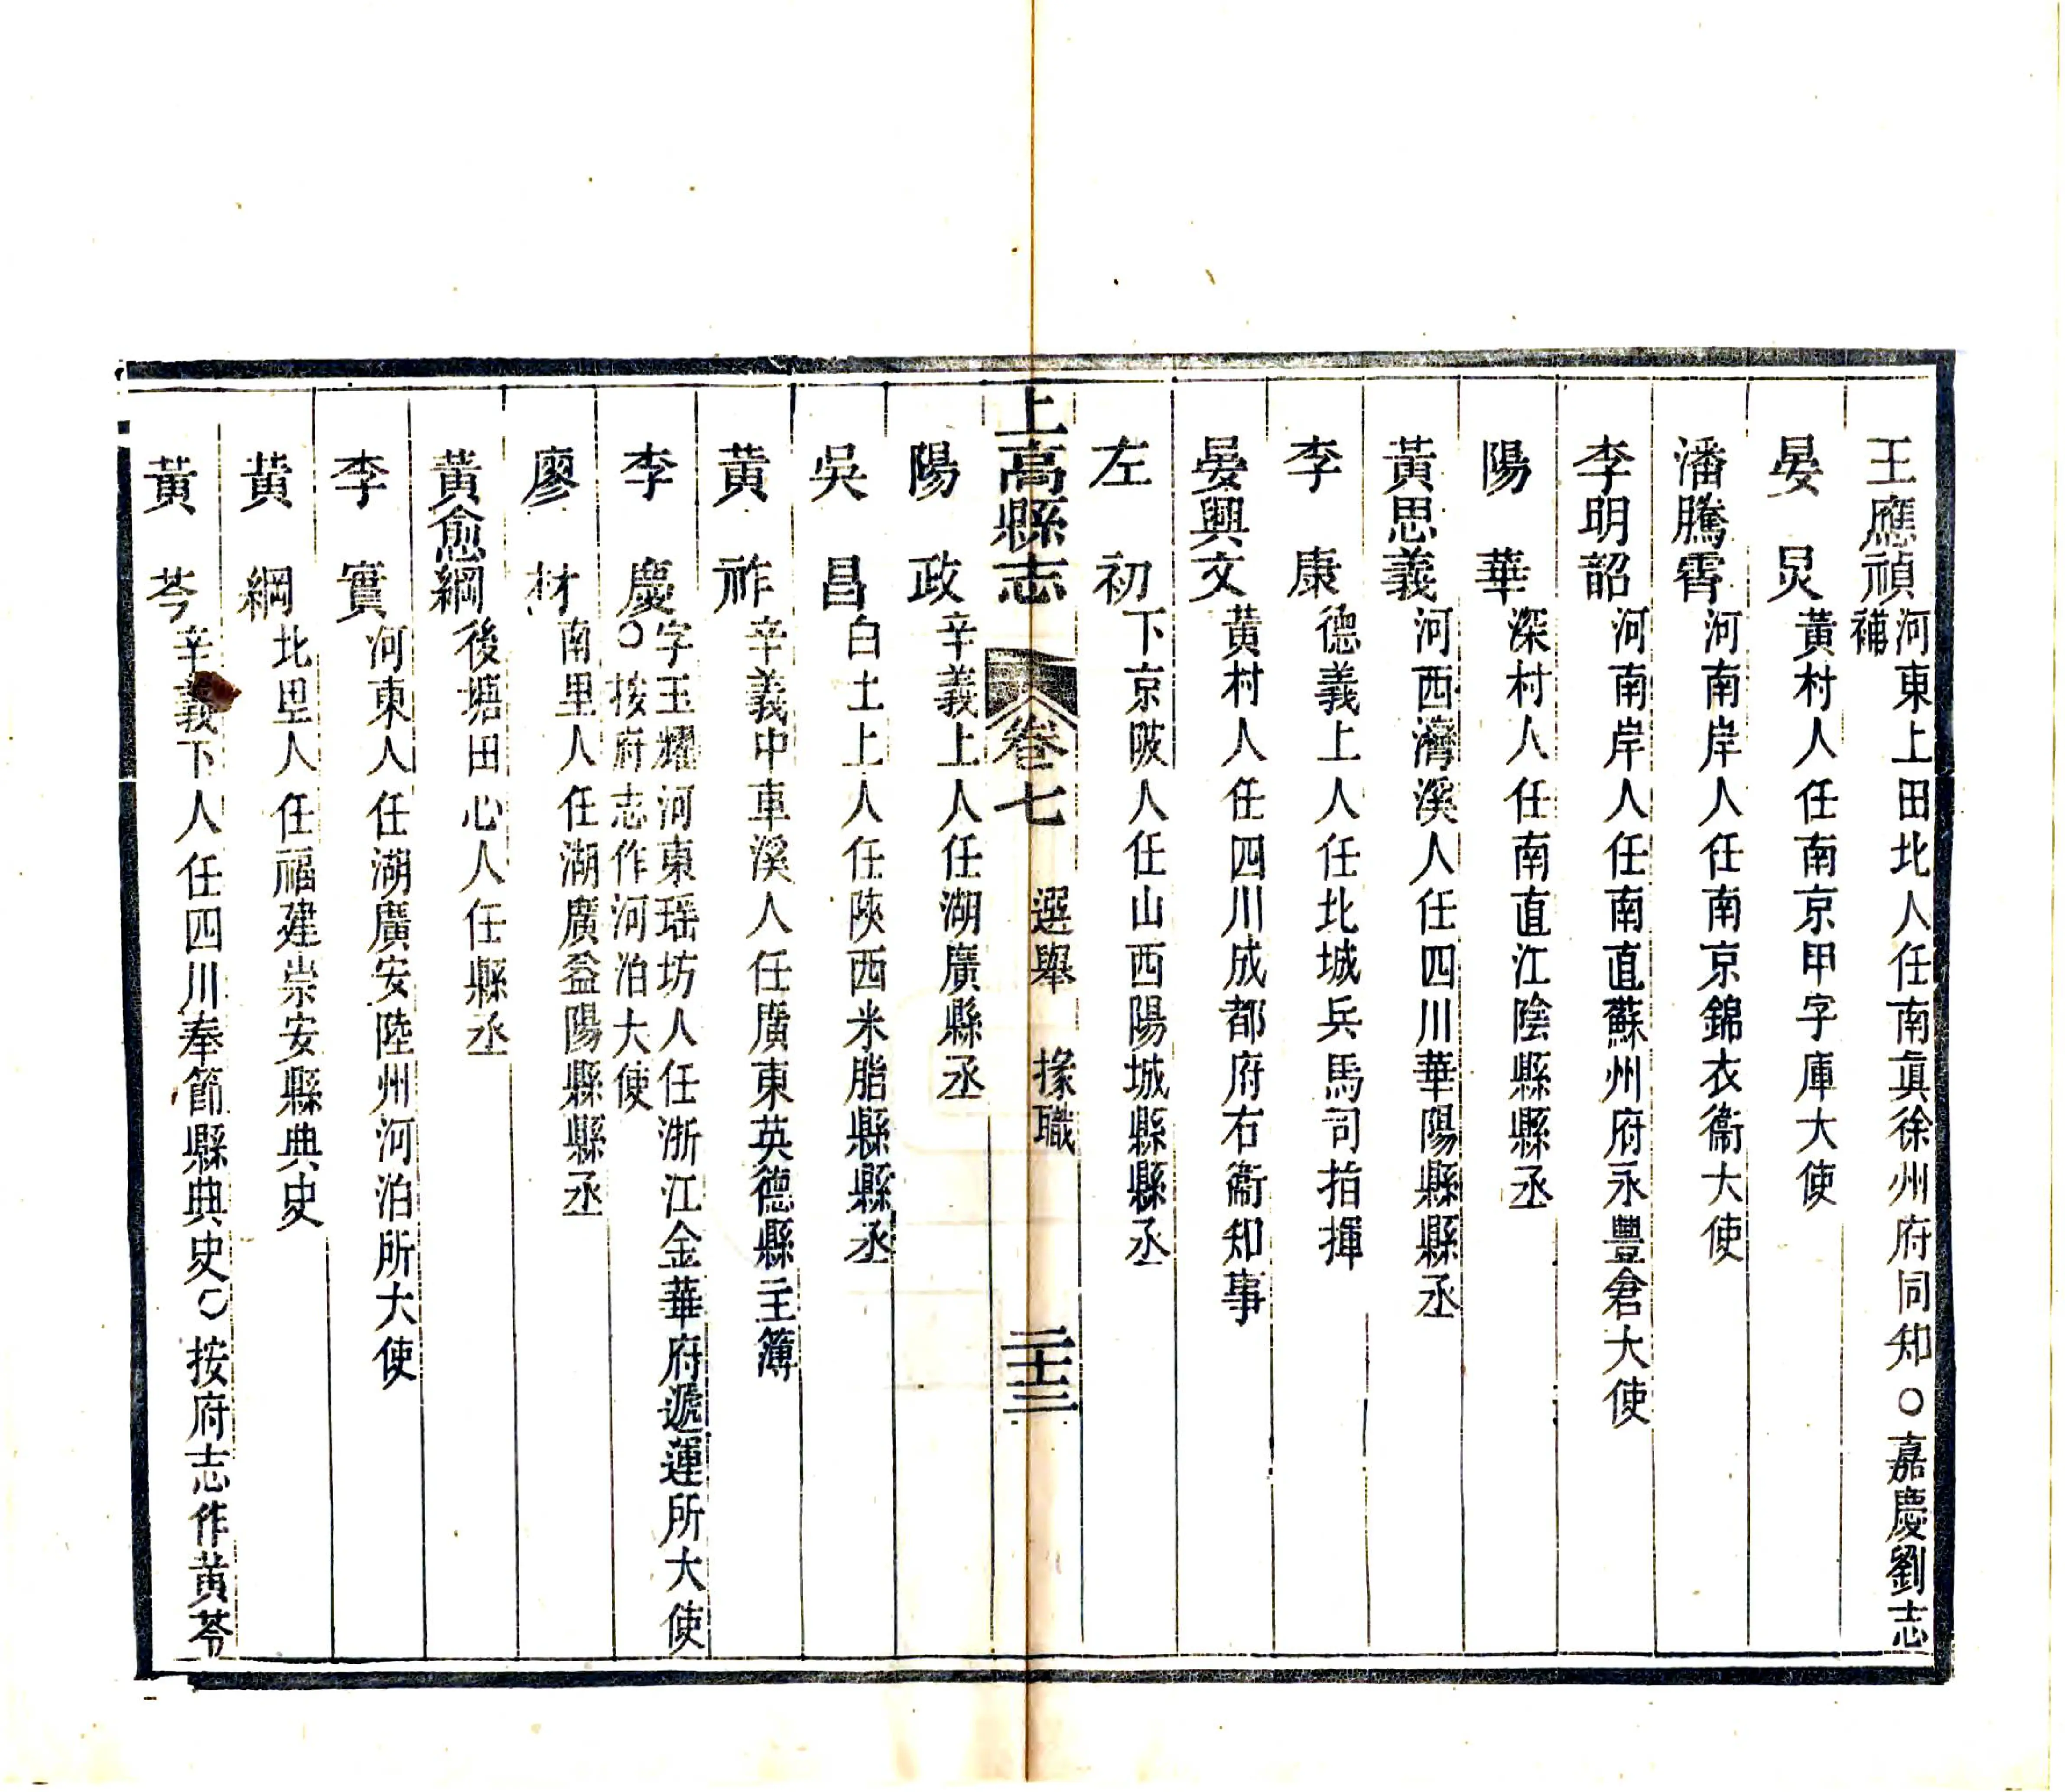 王應禎 河東上田北人任南直徐州府同知〇嘉慶劉志補
晏炅 黃村人任南京甲字庫大使
潘騰霄 河南岸人任南京錦衣衞大使
李明韶 河南岸人任南直蘇州府永豐倉大使
陽華 深村人任南直江陰縣縣丞
黃思義 河西灣溪人任四川華陽縣縣丞
李康 德義上人任北城兵馬司指揮
晏興文 黃村人任四川成都府右衞知事
左初 下京陂人任山西陽城縣縣丞
上高縣志 卷七 選舉 掾職 二十三
陽政 辛義上人任湖廣縣丞
吳昌 白土上人任陝西米脂縣縣丞
黃祚 辛義中車溪人任廣東英德縣主簿
李慶 字玉燿河東瑶坊人任浙江金華府遞運所大使〇按府志作河泊大使
廖材 南里人任湖廣益陽縣縣丞
黃愈綱 後塘田心人任縣丞
李實 河東人任湖廣安陸州河泊所大使
黃綱 北里人任福建崇安縣典史
黃芩 辛義下人任四川奉節縣典史〇按府志作黃苓